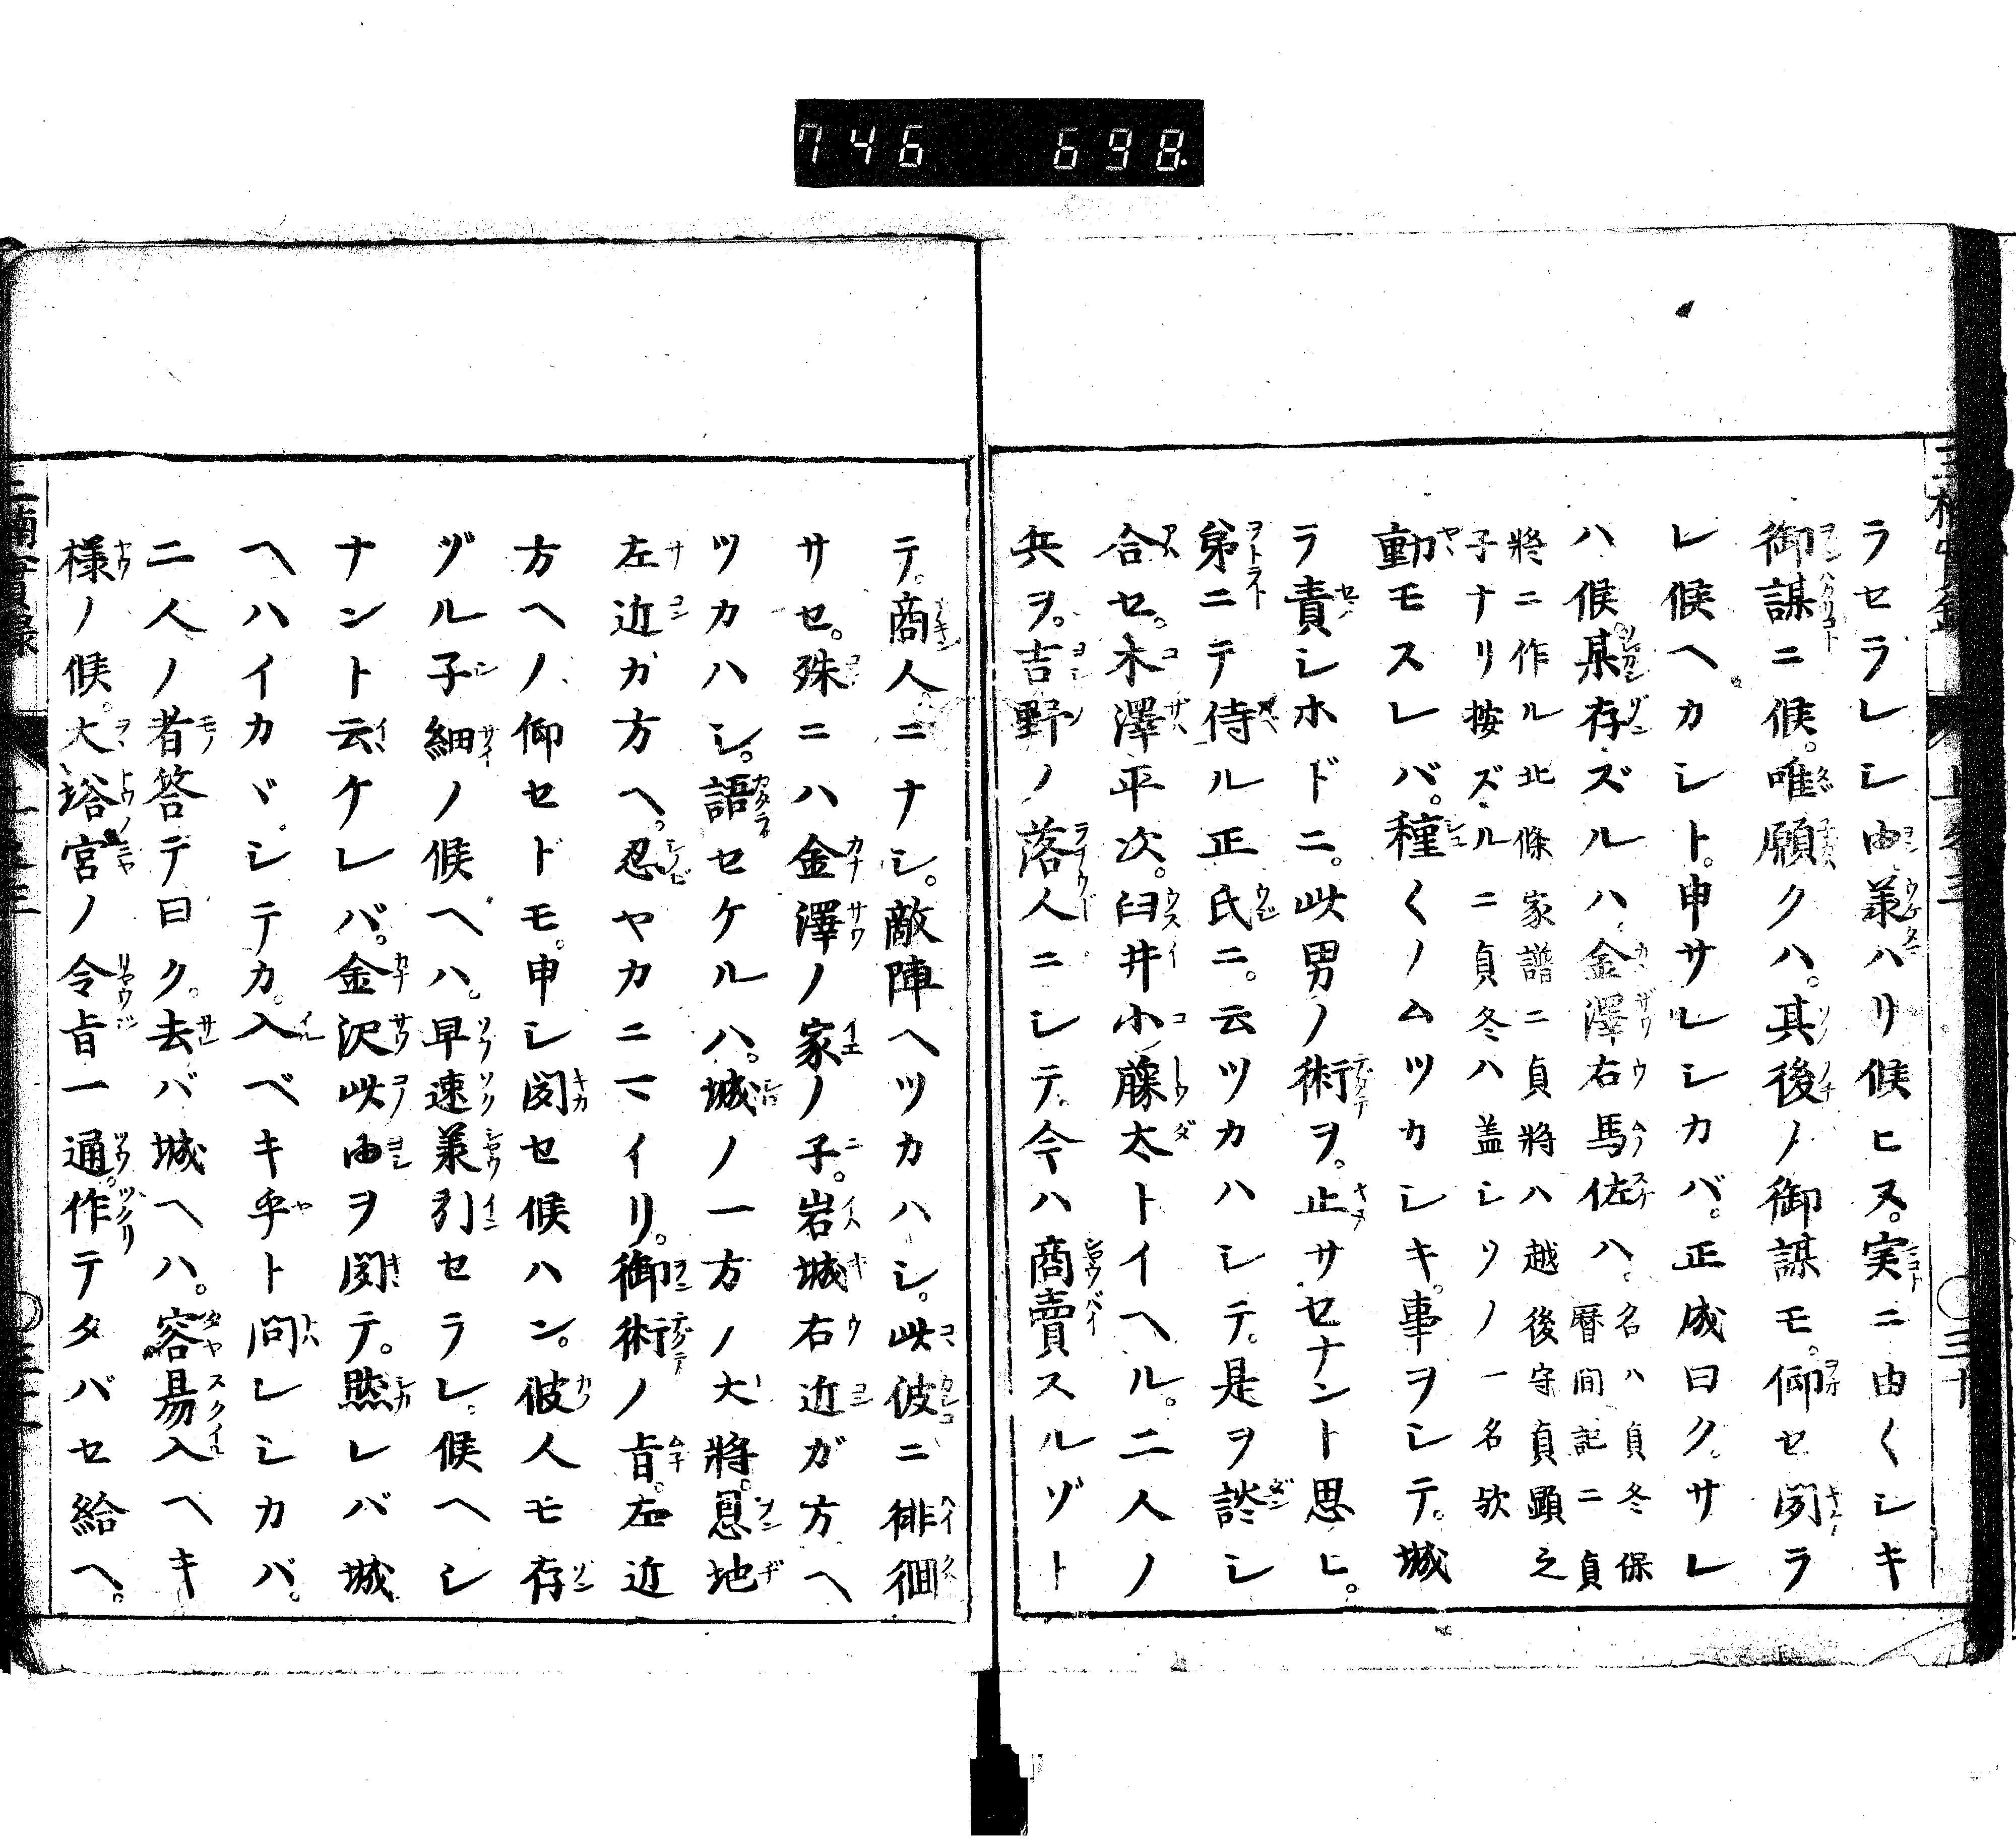 746 698
ラセラレシ由承ハリ候ヒヌ。実ニ由〱シキ
御謀ニ候。唯願クハ。其後ノ御謀モ。仰セ聞ラ
レ候ヘカシト。申サレシカバ。正成曰ク。サレ
ハ候。某存ズルハ。金澤右馬佐ハ。名ハ貞冬保
暦間記ニ貞
將ニ作ル北條家譜ニ貞將ハ越後守貞顕之
子ナリ按ズルニ貞冬ハ蓋シソノ一名欤
動モスレバ。種〱ノムツカシキ。事ヲシテ。城
ラ責シホドニ。此男ノ術ヲ。止サセナント思ヒ。
弟ニテ侍ル正氏ニ。云ツカハシテ。是ヲ談シ
合セ。木澤平次。臼井小藤太トイヘル。二人ノ
兵ヲ。吉野ノ落人ニシテ。今ハ商賣スルゾト
テ。商人ニナシ。敵陣ヘツカハシ。此彼ニ徘徊
サセ。殊ニハ金澤ノ家ノ子。岩城右近ガ方ヘ
ツカハシ。語セケルハ。城ノ一方ノ大將。恩地
左近ガ方ヘ。忍ヤカニマイリ。御術ノ旨。左近
方ヘノ仰セドモ。申シ聞セ候ハン。彼人モ存
ヅル子細ノ候ヘハ。早速兼引セラレ。候ヘシ
ナント云ケレバ。金沢此由ヲ聞テ。然レバ城
ヘハイカヾシテカ。入ベキ乎ト問レシカバ。
二人ノ者答テ曰ク。去バ城ヘハ。容易入ヘキ
様ノ候。大塔宮ノ令旨一通。作テタバセ給ヘ。